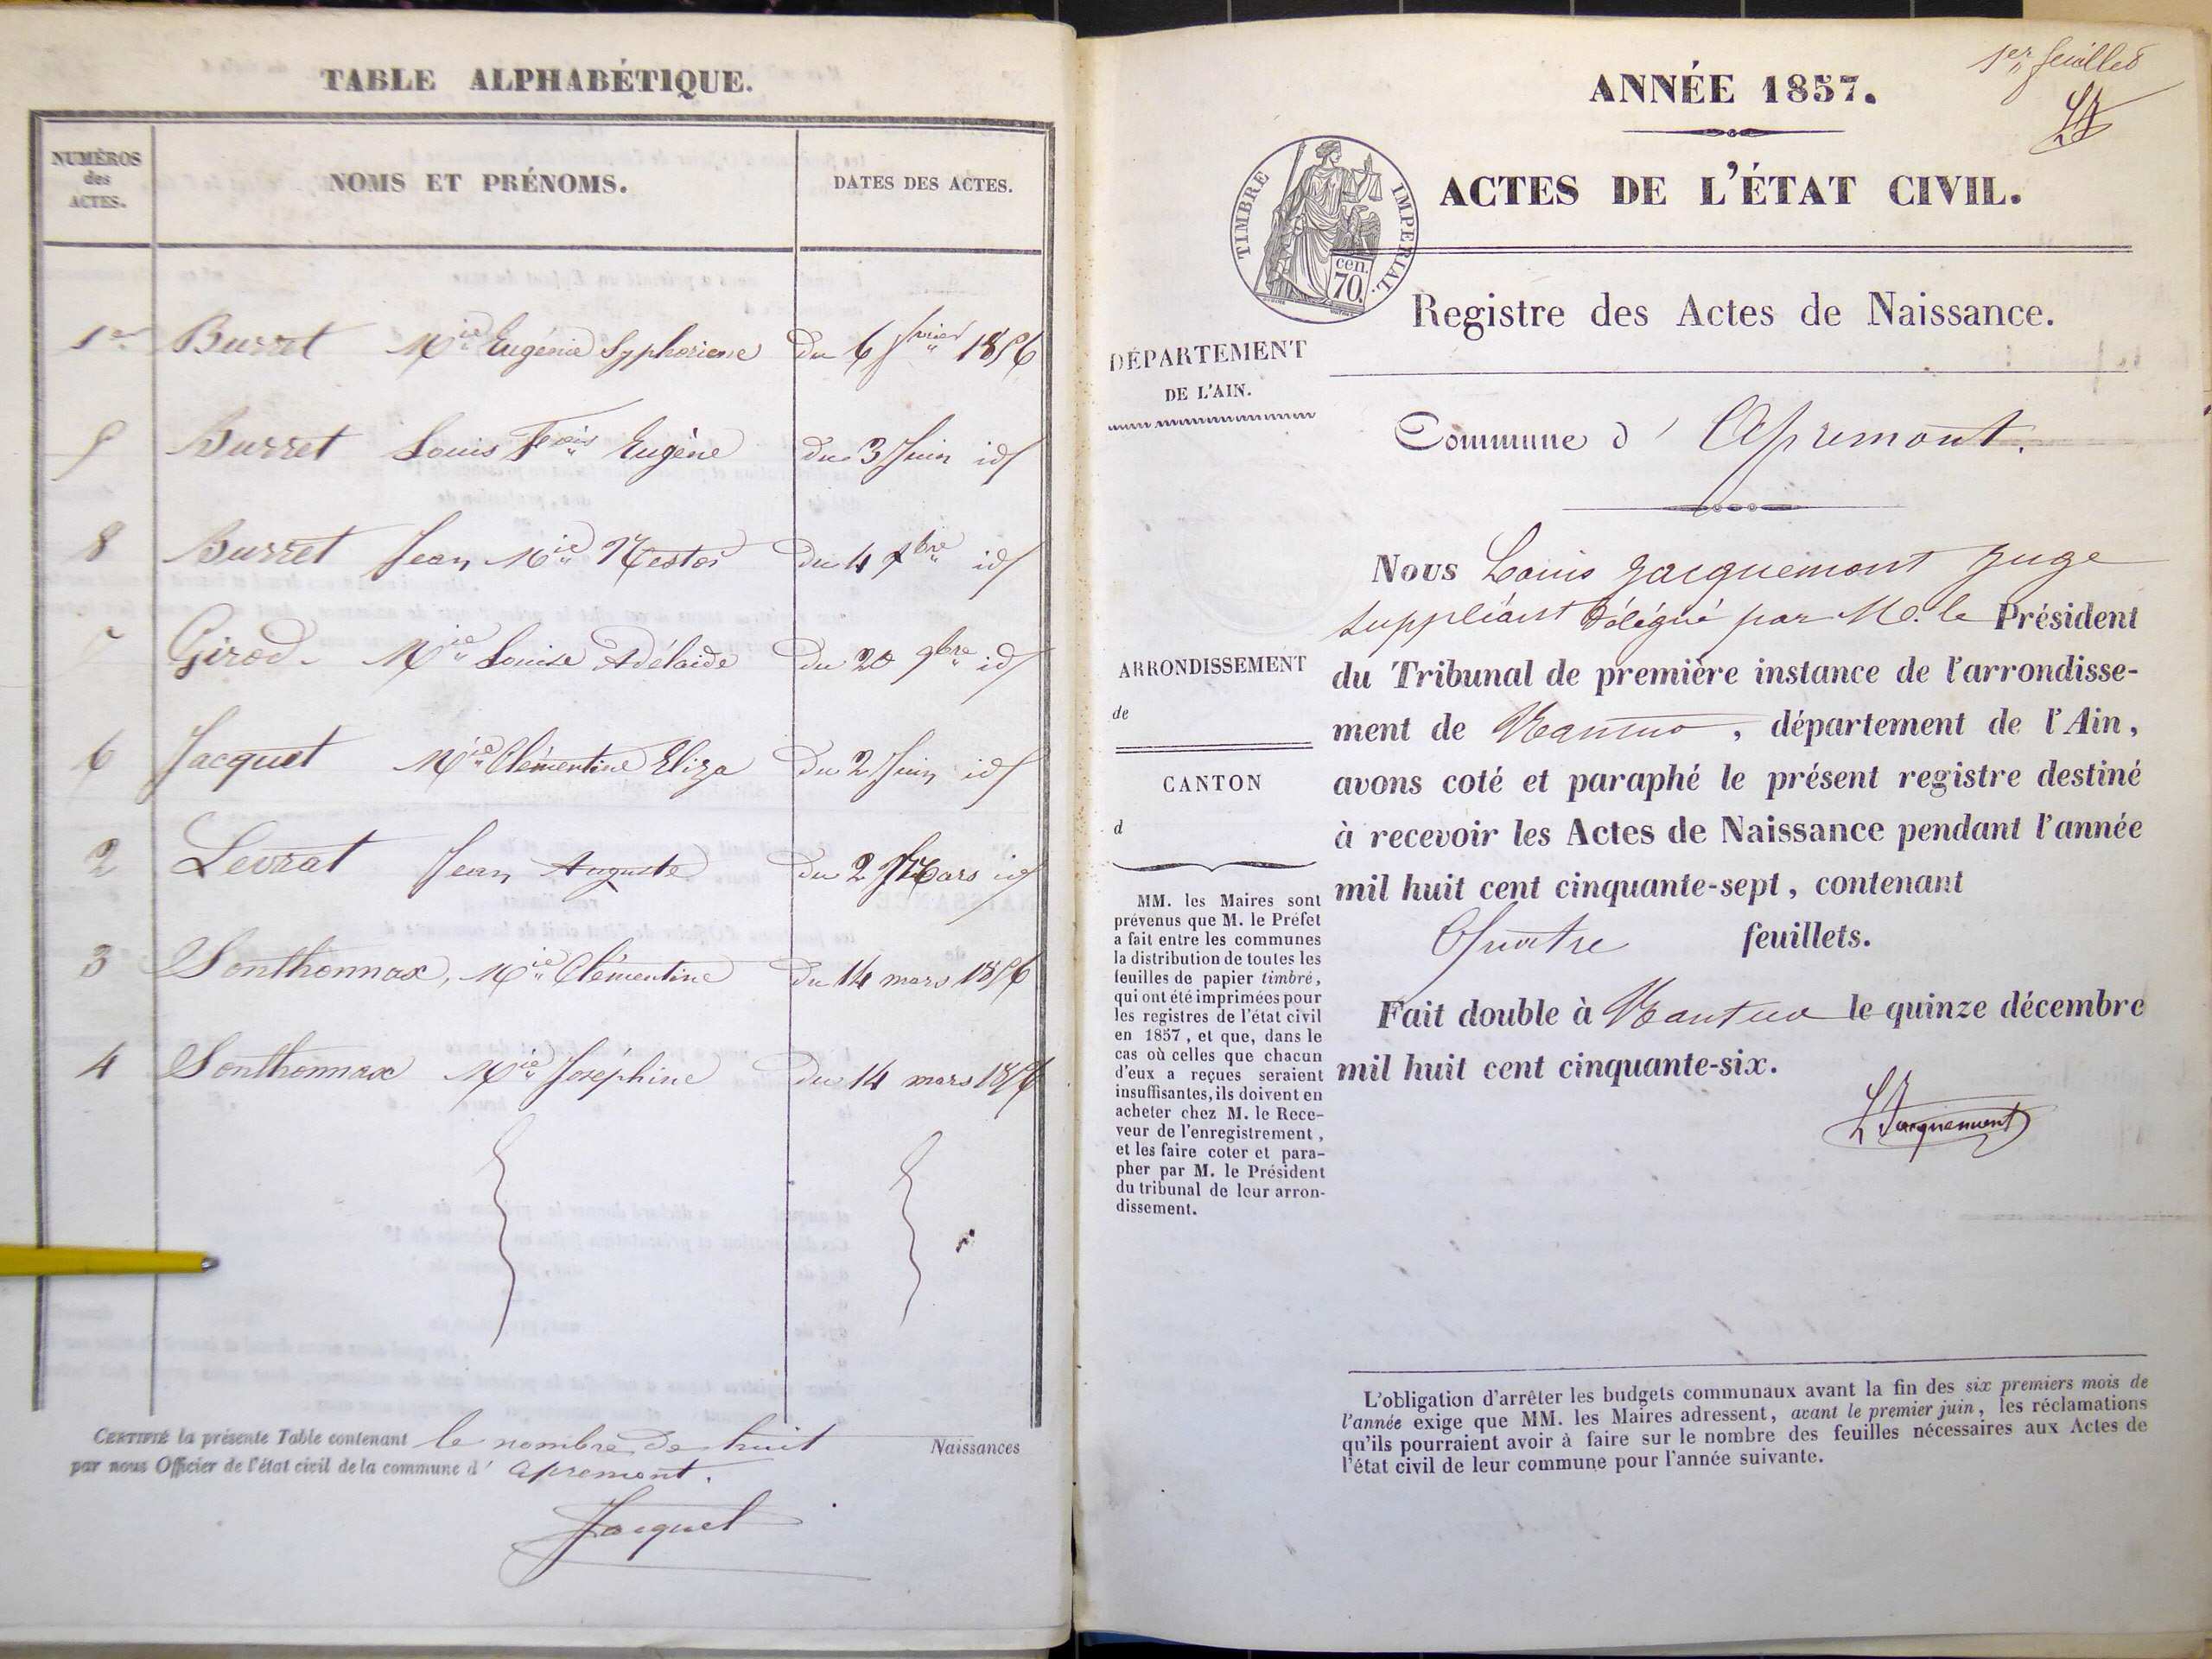 TABLE ALPHABÉTIQUE.
NUMÉROS
des
ACTES.
NOMS ET PRÉNOMS.
DATES DES ACTES.
1er Burret Mie Eugénie Syphoriene Du 6 fvrier 1856
5 Burret Louis Fçois Eugène du 3 Juin id
8 Burret Jean Mie Nestor Du 4 xbre id
7 Girod Mie Louise Adélaide Du 20 9bre id
6 Jacquet Mie Clémentine Eliza Du 2 Juin id
2 Levrat Jean Auguste Du 2 Mars id
3 Sonthonnax, Mie Clémentine Du 14 mars 1856
4 Sonthonnax Mie Joséphine Du 14 mars 1856
CERTIFIÉ la présente Table contenant le nombre de huit Naissances
par nous Officier de l'état civil de la commune d' Apremont.
Jacquet
1er feuillet
ANNÉE 1857.
ACTES DE L'ÉTAT CIVIL.
TIMBRE IMPÉRIAL.
cen.
70.
Registre des Actes de Naissance.
DÉPARTEMENT
DE L'AIN.
Commune d' Apremont.
Nous Louis Jacquemont Juge
suppléant délégué par M. le Président
du Tribunal de première instance de l'arrondisse-
ment de Nantua, département de l'Ain,
avons coté et paraphé le présent registre destiné
à recevoir les Actes de Naissance pendant l'année
mil huit cent cinquante-sept, contenant
Quatre feuillets.
Fait double à Nantua le quinze décembre
mil huit cent cinquante-six.
L Jacquemont
ARRONDISSEMENT
de
CANTON
d
MM. les Maires sont
prévenus que M. le Préfet
a fait entre les communes
la distribution de toutes les
feuilles de papier timbré,
qui ont été imprimées pour
les registres de l'état civil
en 1857, et que, dans le
cas où celles que chacun
d'eux a reçues seraient
insuffisantes, ils doivent en
acheter chez M. le Rece-
veur de l'enregistrement,
et les faire coter et para-
pher par M. le Président
du tribunal de leur arron-
dissement.
L'obligation d'arrêter les budgets communaux avant la fin des six premiers mois de
l'année exige que MM. les Maires adressent, avant le premier juin, les réclamations
qu'ils pourraient avoir à faire sur le nombre des feuilles nécessaires aux Actes de
l'état civil de leur commune pour l'année suivante.